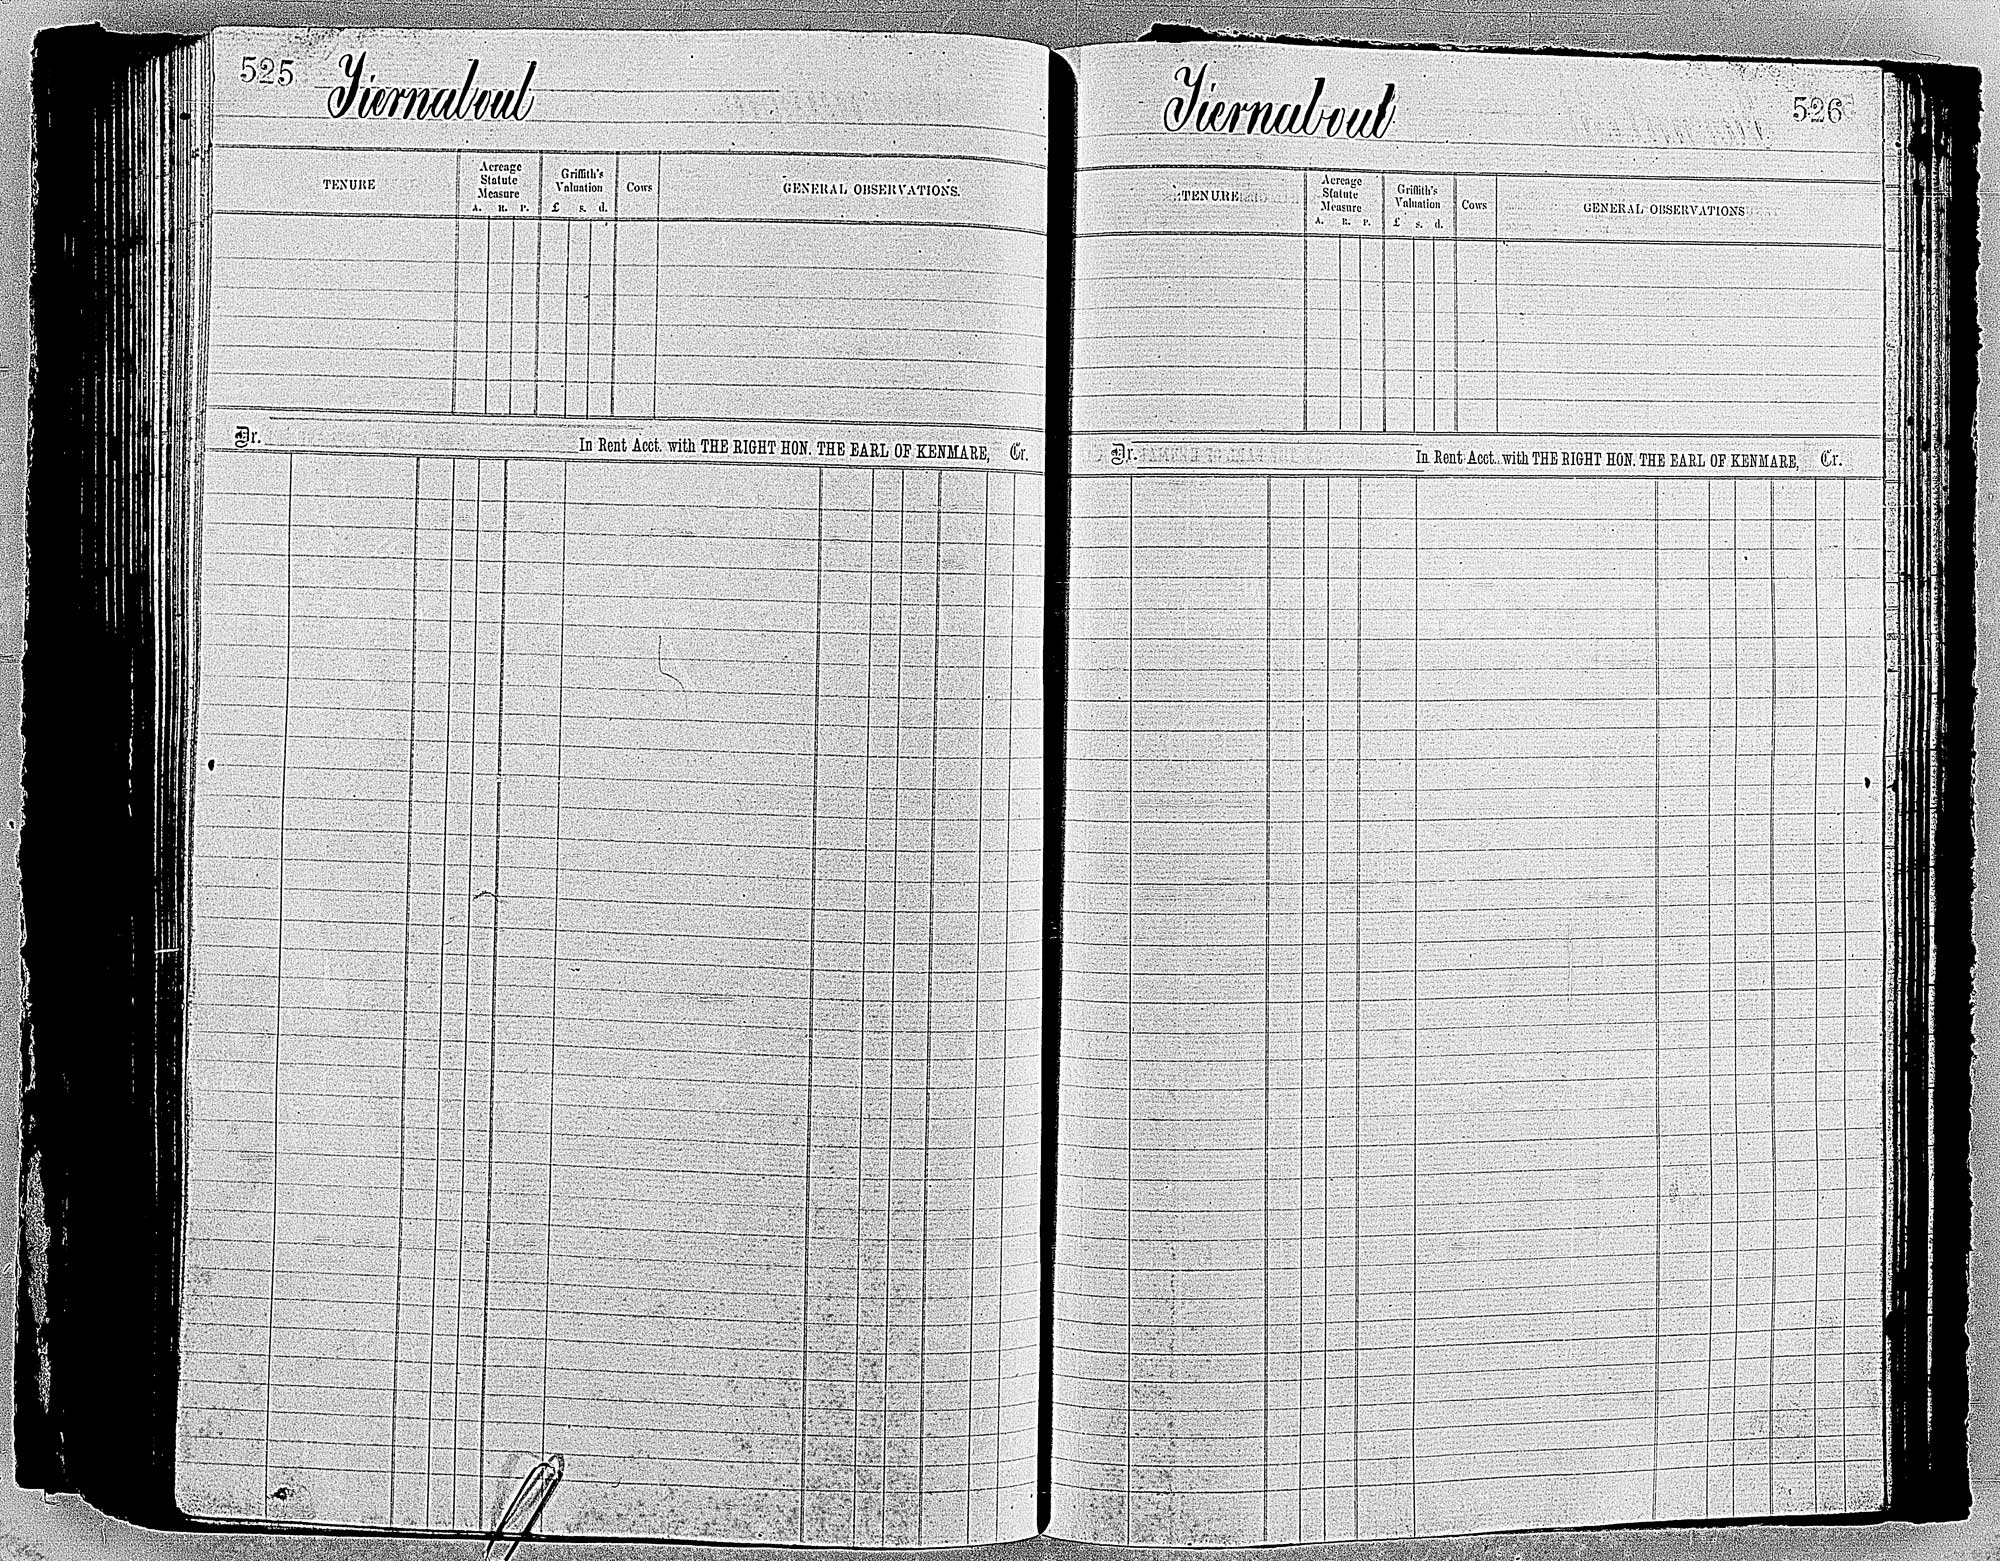 525 Tiernaboul
TENURE
Acreage Statute Measure
A. R. P.
Griffith's Valuation
£ s. d.
Cows
GENERAL OBSERVATIONS.
Dr. In Rent Acct. with THE RIGHT HON. THE EARL OF KENMARE, Cr.
Tiernaboul 526
TENURE
Acreage Statute Measure
A. R. P.
Griffith's Valuation
£ s. d.
Cows
GENERAL OBSERVATIONS
Dr. In Rent Acct. with THE RIGHT HON. THE EARL OF KENMARE, Cr.